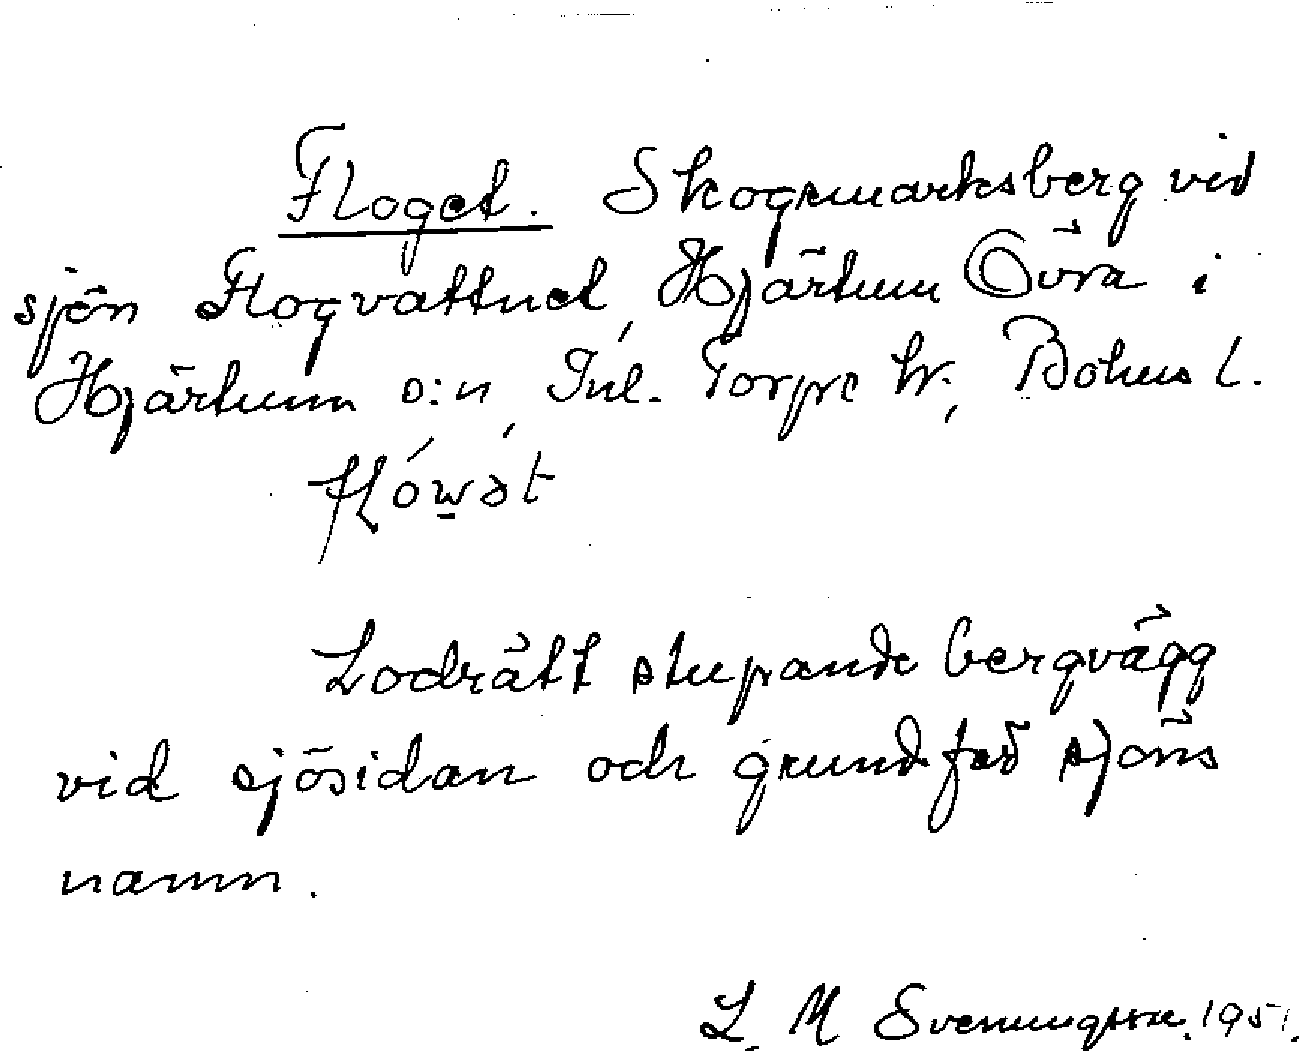 Floget. Skogsmarksberg vid
sjön Flogvattnet, Hjärtum Övra i
Hjärtum s:n, Inl. Torpe hr, Bohus l.
flówət
Lodrätt stupande bergvägg
vid sjösidan och grund för sjöns
namn.
L. M Svenungsson. 1951.